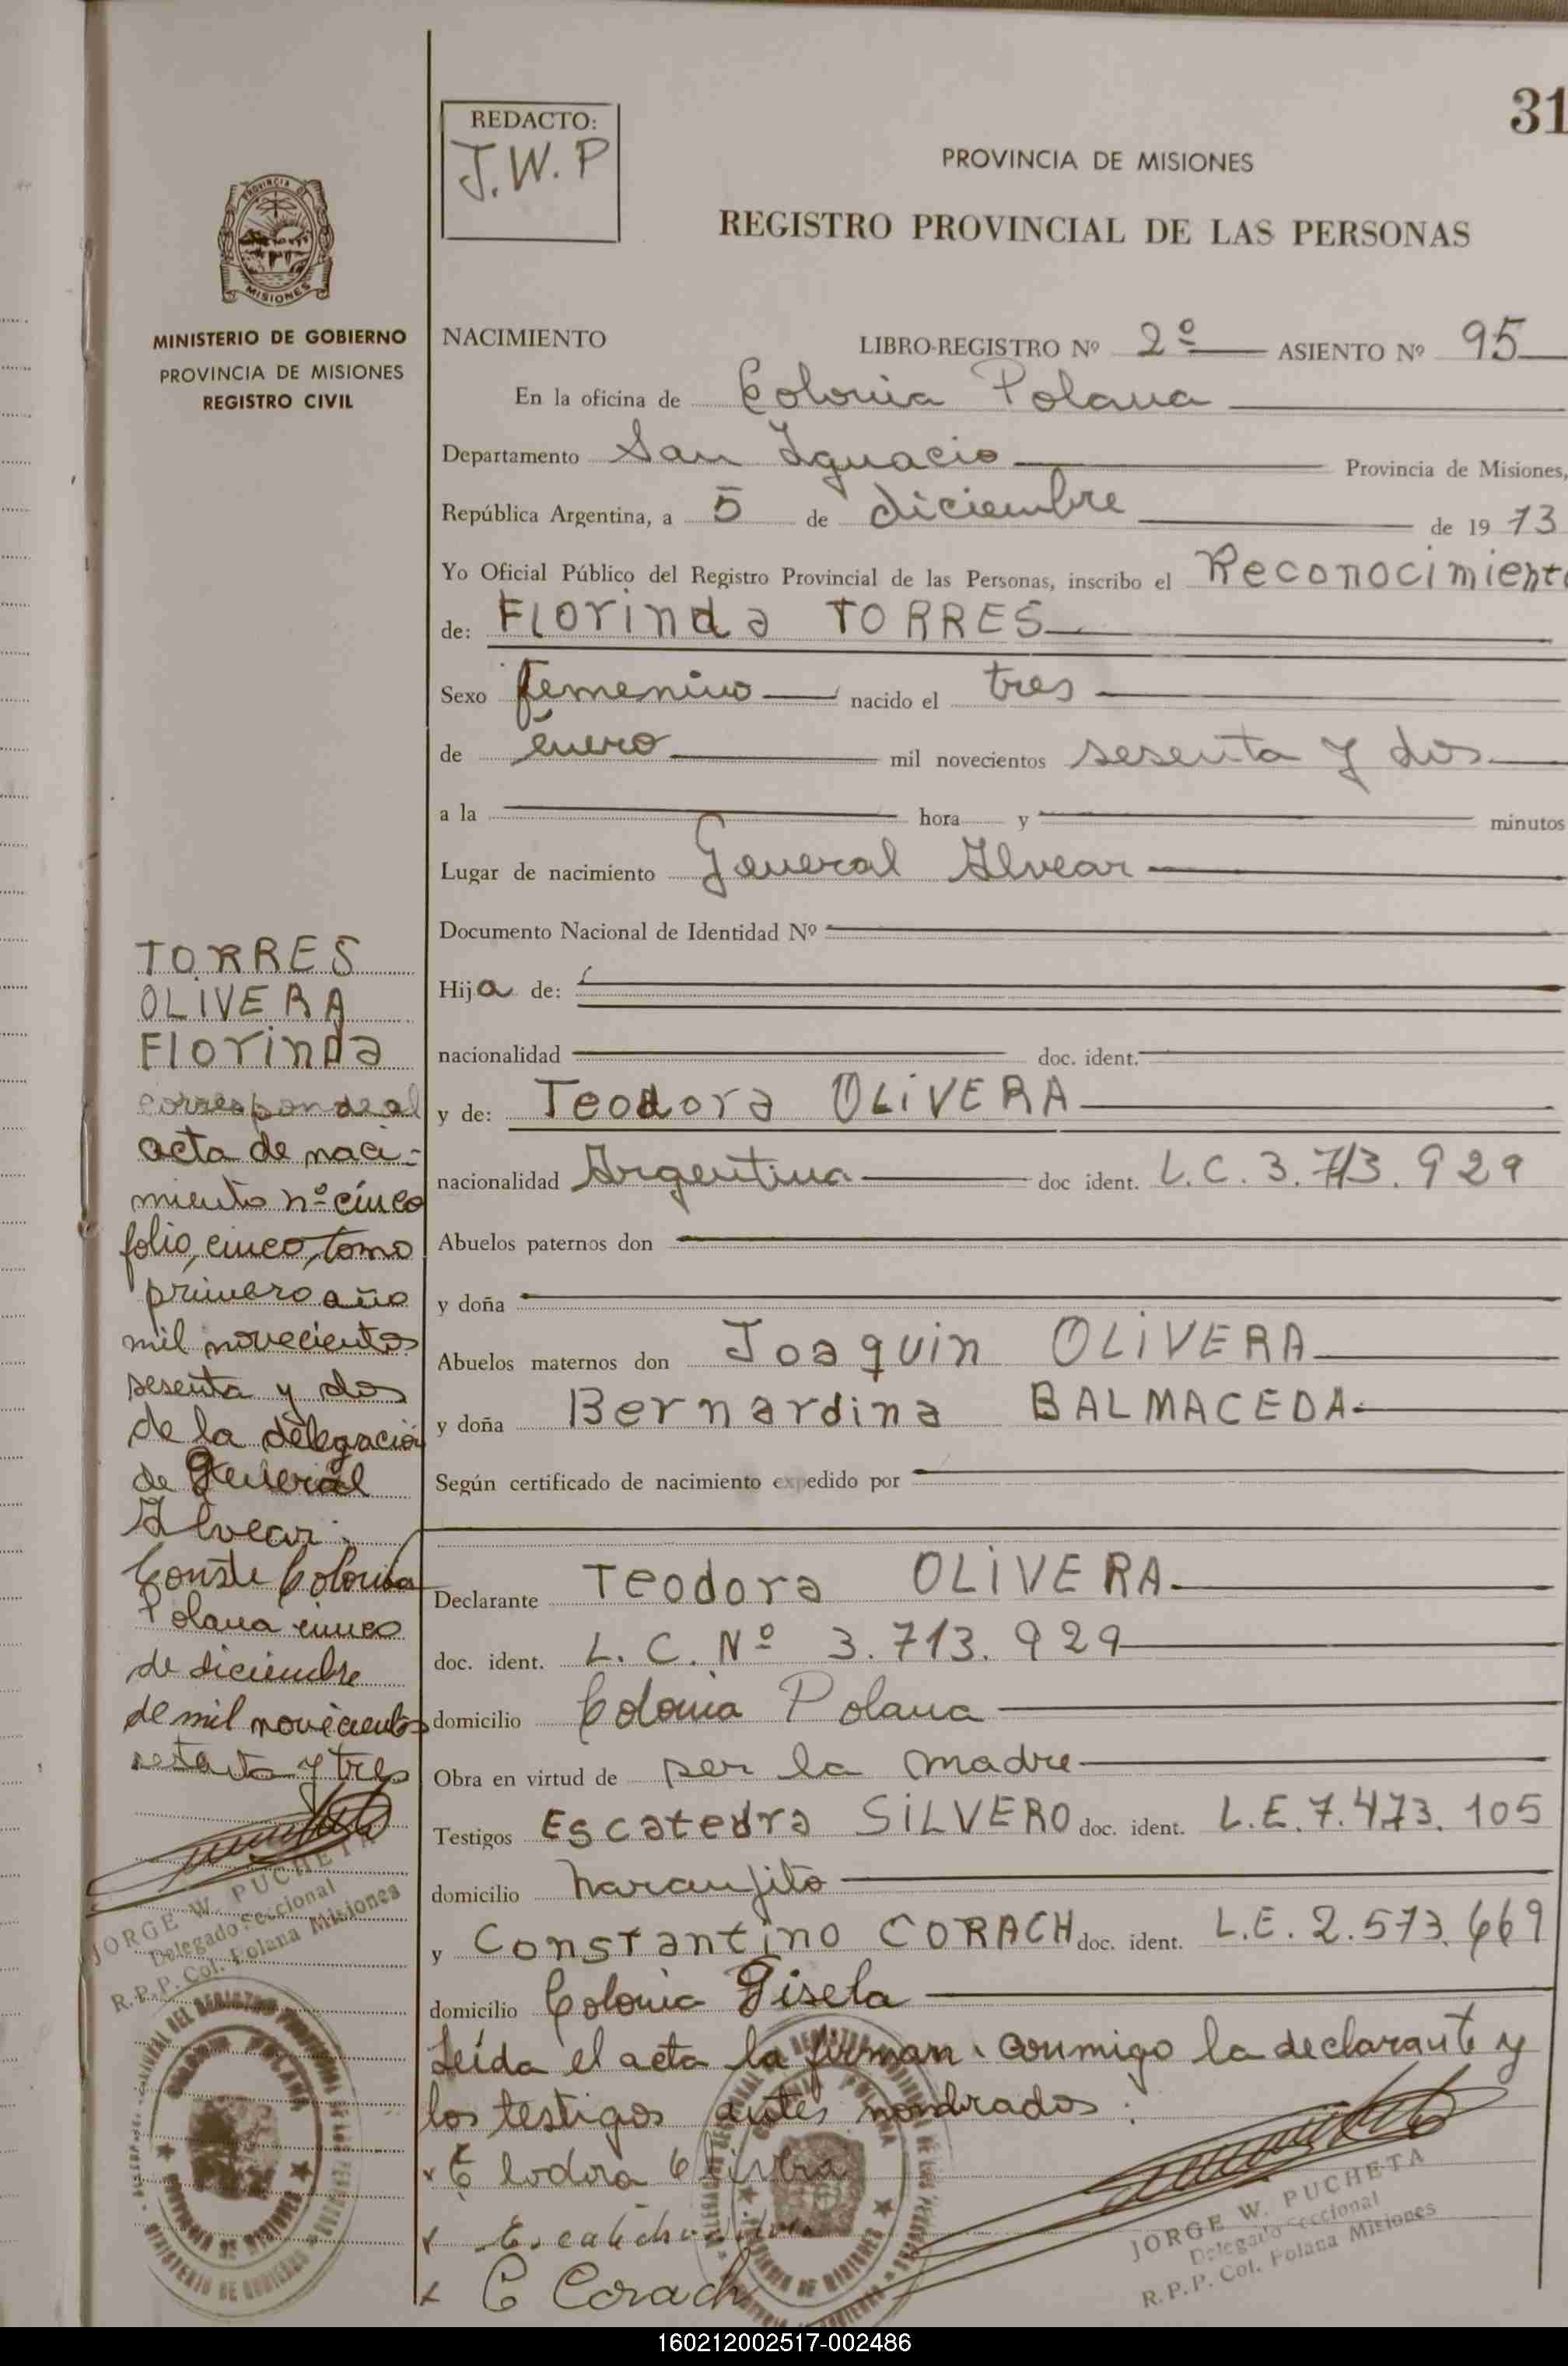 31
REDACTO:
J.W.P
PROVINCIA DE MISIONES
REGISTRO PROVINCIAL DE LAS PERSONAS
PROVINCIA DE
MISIONES
MINISTERIO DE GOBIERNO
PROVINCIA DE MISIONES
REGISTRO CIVIL
NACIMIENTO LIBRO-REGISTRO Nº 2º ASIENTO Nº 95
En la oficina de Colonia Polana
Departamento San Ignacio Provincia de Misiones,
República Argentina, a 5 de diciembre de 1973
Yo Oficial Público del Registro Provincial de las Personas, inscribo el Reconocimiento
de: Florinda TORRES
Sexo femenino nacido el tres
de enero mil novecientos sesenta y dos
a la hora y minutos
Lugar de nacimiento General Alvear
Documento Nacional de Identidad Nº
Hija de:
nacionalidad doc. ident.
y de: Teodora OLIVERA
nacionalidad Argentina doc ident. L.C. 3.713.929
Abuelos paternos don
y doña
Abuelos maternos don Joaquin OLIVERA
y doña Bernardina BALMACEDA
Según certificado de nacimiento expedido por
Declarante Teodora OLIVERA
doc. ident. L. C. Nº 3.713.929
domicilio Colonia Polana
Obra en virtud de ser la madre
Testigos Escatedra SILVERO doc. ident. L.E. 7.473.105
domicilio Naranjito
y Constantino CORACH doc. ident. L.E. 2.573.669
domicilio Colonia Gisela
Leída el acta la firman conmigo la declarante y
los testigos antes nombrados.
C Corach
JORGE W. PUCHETA
Delegado Seccional
R.P.P. Col. Polana Misiones
TORRES
OLIVERA
Florinda
corresponde al
acta de naci-
miento nº cinco
folio, cinco, tomo
primero año
mil novecientos
sesenta y dos
de la delegación
de General
Alvear.
Conste Colonia
Polana cinco
de diciembre
de mil novecientos
setenta y tres
JORGE W. PUCHETA
Delegado Seccional
R.P.P. Col. Polana Misiones
COLONIA POLANA
PROVINCIA DE MISIONES
160212002517-002486